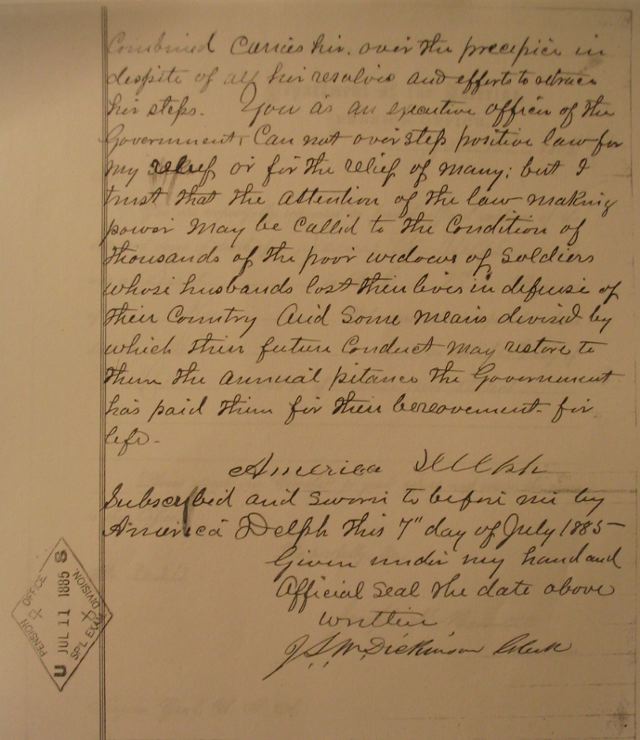 Combined carries her over the precipice in
despite of all her resolves and efforts to retrace
her steps. You as an executive officer of the
Government, Can not over step positive law for
my relief or for the relief of many; but I
trust that the attention of the law making
power may be called to the Condition of
thousands of the poor widows of Soldiers
whose husbands lost their lives in defense of
their Country And Some means devised by
which their future Conduct may restore to
them the annual pitance the Government
has paid them for their bereavement for
life.
America Delph
Subscribed and Sworn to before me by
America Delph this 7" day of July 1885
Given under my hand and
Official Seal the date above
written
J.S.W. Dickinson Clerk
PENSION OFFICE
U JUL 11 1885 S
SPL EXAM DIVISION.